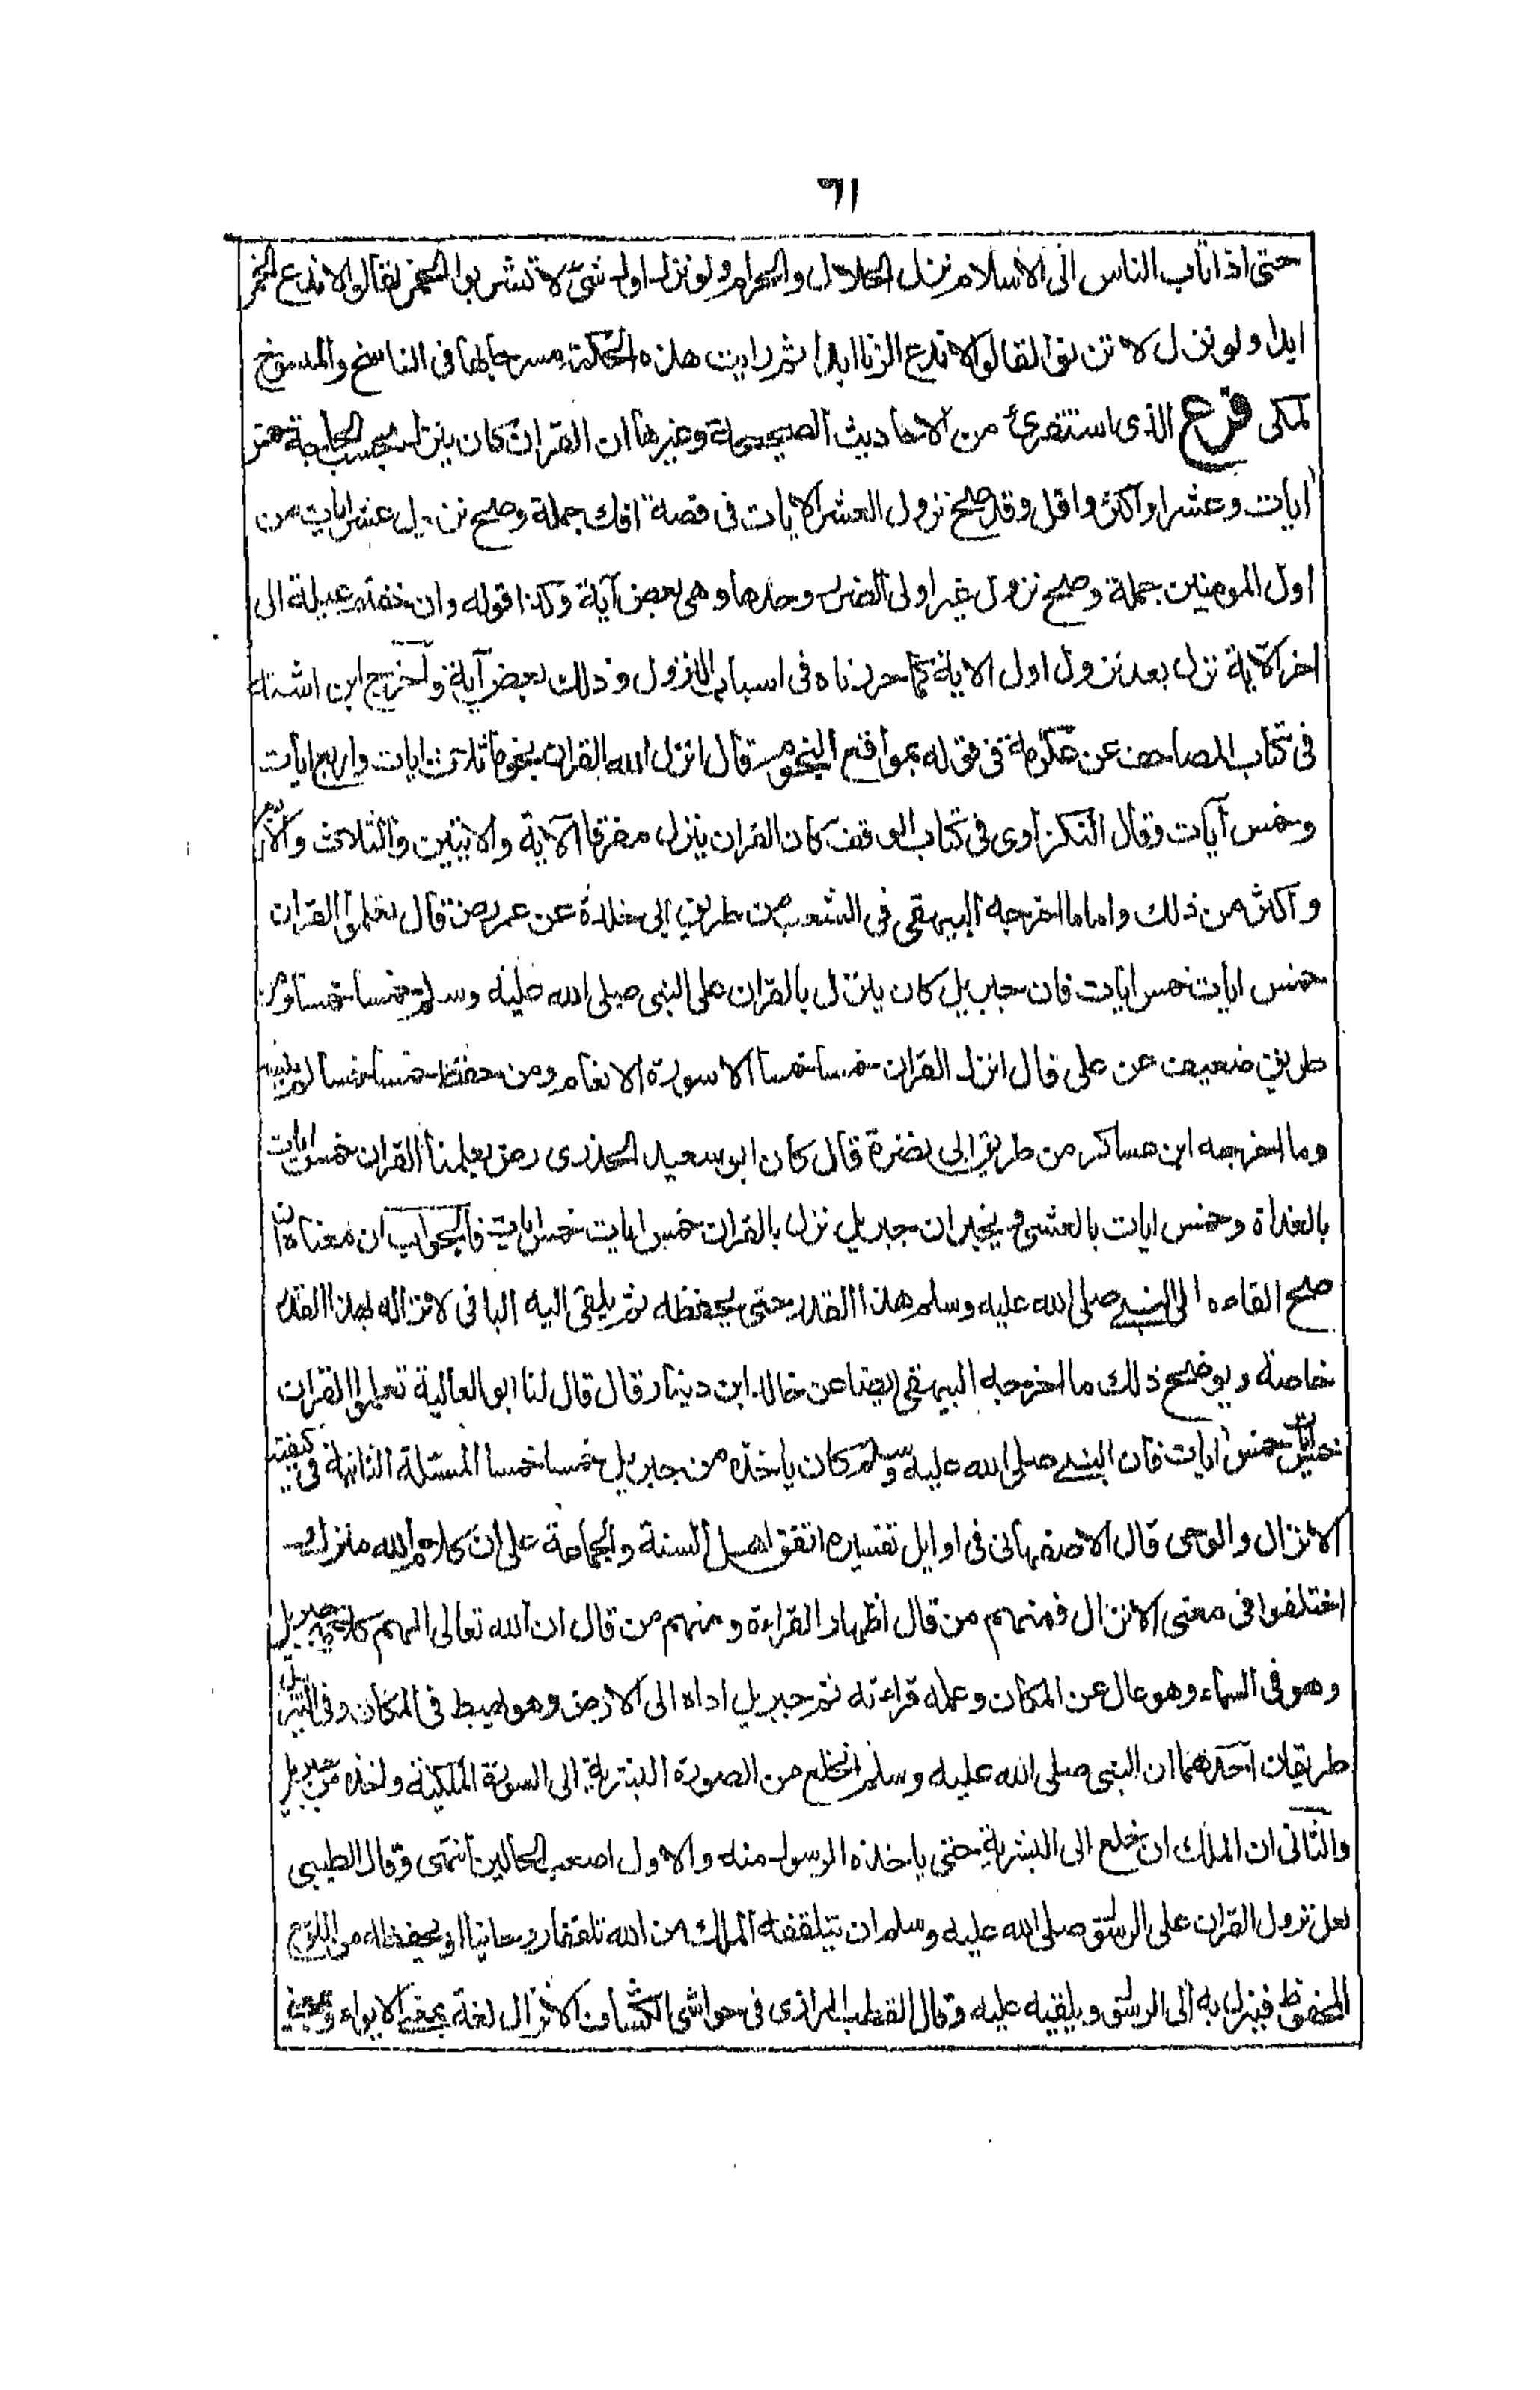 ٦١
حتى اذا ثاب الناس الى الاسلام نزل الحلال والحرام ولو نزل اول شئ لا تشربوا الخمر لقالوا لا ندع الخمر
ابدا ولو نزل لا تزنوا لقالوا لا ندع الزنا ابدا ثم رايت هذه الحكمة مصرحا بها فى الناسخ والمنسوخ
لمكى فرع الذى استقرئ من الاحاديث الصحيحة وغيرها ان القران كان ينزل بحسب الحاجة خمس
ايات وعشرا واكثر واقل وقد صح نزول العشر الايات فى قصة افك جملة وصح نزول عشر ايات من
اول المومنين جملة وصح نزول غير اولى الضرر وحدها وهى بعض آية وكذا قوله وان خفتم عيلة الى
اخر الآية نزل بعد نزول اول الاية كما حررناه فى اسباب النزول وذلك بعض آية وآخرج ابن اشته
فى كتاب المصاحف عن عكرمة فى قوله بمواقع النجوم قال انزل الله القران نجوما ثلاث ايات واربع ايات
وخمس آيات وقال النكزاوى فى كتاب الوقف كان القران ينزل مفرقا الآية والايتين والثلاث والاربع
واكثر من ذلك واما ما اخرجه البيهقى فى الشعب من طريق ابى خلدة عن عمر رض قال تعلموا القران
خمس ايات خمس ايات فان جبريل كان ينزل بالقران على النبى صلى الله عليه وسلم خمسا خمسا ومن
طريق ضعيف عن على قال انزل القران خمسا خمسا الا سورة الانعام ومن حفظ خمسا خمسا لم ينسه
وما اخرجه ابن عساكر من طريق ابى نضرة قال كان ابو سعيد الخدرى رض يعلمنا القران خمس ايات
بالغداة وخمس ايات بالعشى ويخبر ان جبريل نزل بالقران خمس ايات خمس ايات فالجواب ان معناه ان
صح القاءه الى النبى صلى الله عليه وسلم هذا القدر حتى يحفظه ثم يلقى اليه الباقى لا انزاله بهذا القدر
خاصة ويوضح ذلك ما اخرجه البيهقى ايضا عن خالد ابن دينار قال قال لنا ابو العالية تعلموا القران
خمس ايات خمس ايات فان النبى صلى الله عليه وسلم كان ياخذه من جبريل خمسا خمسا المسئلة الثانية فى كيفية
الانزال والوحى قال الاصفهانى فى اوايل تفسيره اتفق اهل السنة والجماعة على ان كلام الله منزل
اختلفوا فى معنى الانزال فمنهم من قال اظهار القراءة ومنهم من قال ان الله تعالى الهم كلامه جبريل
وهو فى السماء وهو عال عن المكان وعلمه قراءته ثم جبريل اداه الى الارض وهو يهبط فى المكان وفى التنزيل
طريقان آحدهما ان النبى صلى الله عليه وسلم انخلع من الصورة البشرية الى السورة الملكية واخذه من جبريل
والثانى ان الملك انخلع الى البشرية حتى ياخذه الرسول منه والاول اصعب الحالين انتهى وقال الطيبى
لعل نزول القران على الرسول صلى الله عليه وسلم ان يتلقفه الملك من الله تلقفا روحانيا او يحفظه من اللوح
المحفوظ فينزل به الى الرسول ويلقيه عليه وقال القطب الرازى فى حواشى الكشاف الانزال لغة بمعنى الايواء